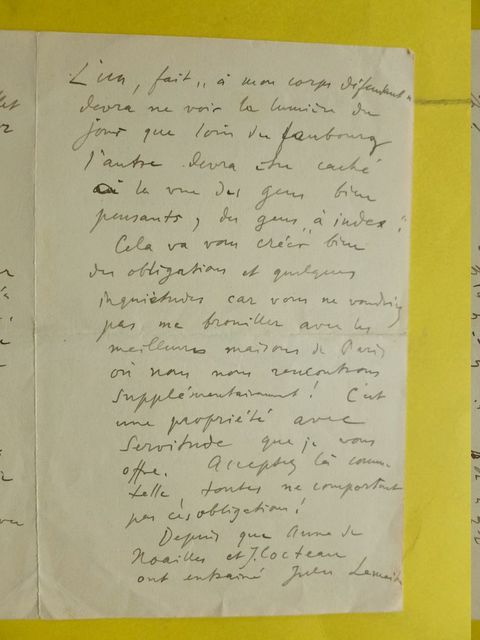 L'un, fait „ à mon corps défendant "
devra ne voir la lumière du
jour que loin du faubourg
l'autre devra être caché
à la vue des gens bien
pensants, des gens „ à index ".
Cela va vous créer bien
des obligations et quelques
inquiétudes car vous ne voudriez
pas me brouiller avec les
meilleures maisons de Paris
où nous nous rencontrons
supplémentairement ! C'est
une propriété avec
servitude que je vous
offre. Acceptez là comme
telle, toutes ne comportent
pas ces obligations !
Depuis que Anna de
Noailles et J. Cocteau
ont entrainé Jules Lemaitre